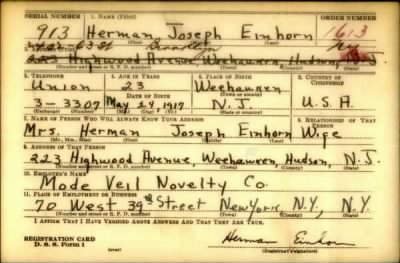 SERIAL NUMBER 1. NAME (Print) ORDER NUMBER
913 Herman Joseph Einhorn 1613
(First) (Middle) (Last)
Brooklyn
223 Highwood Avenue, Weehawken, Hudson, N.J.
(Number and street or R. F. D. number) (Town) (County) (State)
3. TELEPHONE 4. AGE IN YEARS 5. PLACE OF BIRTH 6. COUNTRY OF CITIZENSHIP
Union 23 Weehawken
DATE OF BIRTH (Town or county)
3-3307 May 24, 1917 N.J. U.S.A.
(Exchange) (Number) (Mo.) (Day) (Yr.) (State or country)
7. NAME OF PERSON WHO WILL ALWAYS KNOW YOUR ADDRESS 8. RELATIONSHIP OF THAT PERSON
Mrs. Herman Joseph Einhorn Wife
(Mr., Mrs., Miss) (First) (Middle) (Last)
9. ADDRESS OF THAT PERSON
223 Highwood Avenue, Weehawken, Hudson, N.J.
(Number and street or R. F. D. number) (Town) (County) (State)
10. EMPLOYER'S NAME
Mode Veil Novelty Co.
11. PLACE OF EMPLOYMENT OR BUSINESS
70 West 39th Street New York, N.Y., N.Y.
(Number and street or R. F. D. number) (Town) (County) (State)
I AFFIRM THAT I HAVE VERIFIED ABOVE ANSWERS AND THAT THEY ARE TRUE.
REGISTRATION CARD
D. S. S. Form 1 (over) Herman Einhorn
(Registrant's signature)